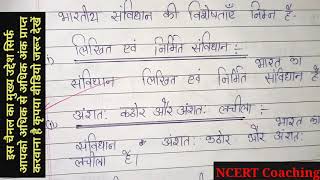 भारतीय संविधान की विशेषताएँ निम्न हैं-
(i) लिखित एवं निर्मित संविधान :-
भारत का
संविधान लिखित एवं निर्मित संविधान है
(ii) अंशतः कठोर और अंशतः लचीला :-
भारत का
संविधान अंशतः कठोर और अंशतः
लचीला है।
इस चैनल का मुख्य उद्देश सिर्फ
आपको अधिक से अधिक अंक प्राप्त
करवाना है कृपया वीडियो जरूर देखें
NCERT Coaching